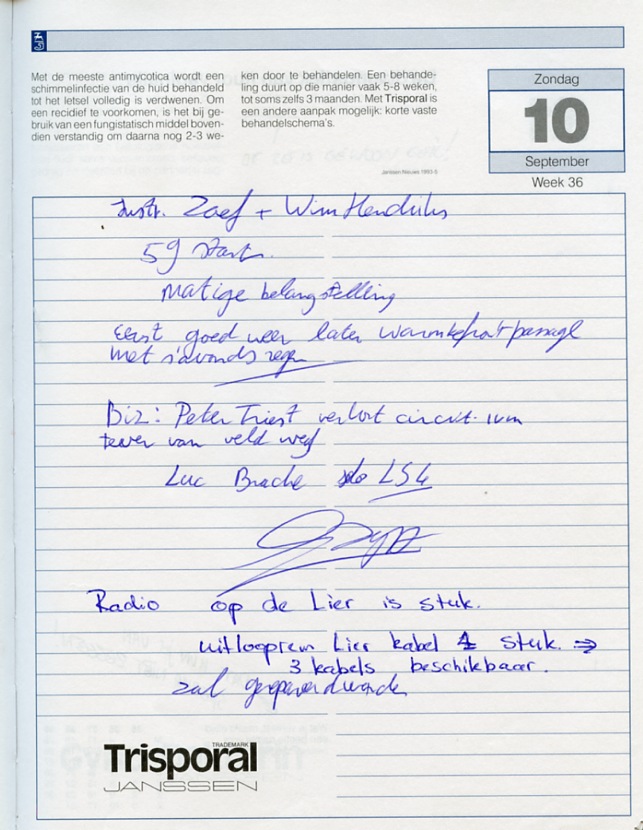 Met de meeste antimycotica wordt een
schimmelinfectie van de huid behandeld
tot het letsel volledig is verdwenen. Om
een recidief te voorkomen, is het bij ge-
bruik van een fungistatisch middel boven-
dien verstandig om daarna nog 2-3 we-
ken door te behandelen. Een behande-
ling duurt op die manier vaak 5-8 weken,
tot soms zelfs 3 maanden. Met Trisporal is
een andere aanpak mogelijk: korte vaste
behandelschema's.
Janssen Nieuws 1993-5
Zondag
10
September
Week 36
Instr. Zoef + Wim Hendriks
59 starts.
Matige belangstelling
Eerst goed weer later warmtefrontpassage
met s'avonds regen
Biz: Peter Triest verliet circuit ivm
te ver van veld weg
Luc Brache solo LS4
Radio op de Lier is stuk.
uitlooprem Lier kabel 4 stuk. ⇒
3 kabels beschikbaar.
zal gerepareerd worden
Trisporal
TRADEMARK
JANSSEN